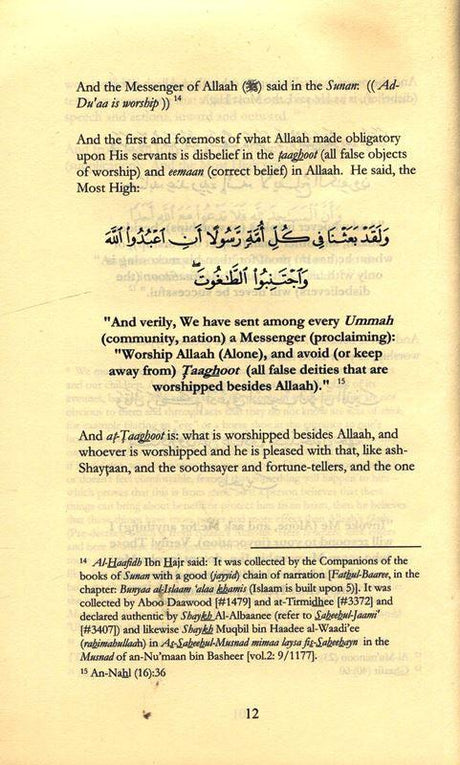 And the Messenger of Allaah (ﷺ) said in the Sunan: (( Ad-
Du'aa is worship )) 14
And the first and foremost of what Allaah made obligatory
upon His servants is disbelief in the ṭaaghoot (all false objects
of worship) and eemaan (correct belief) in Allaah. He said, the
Most High:
وَلَقَدْ بَعَثْنَا فِي كُلِّ أُمَّةٍ رَّسُولًا أَنِ اعْبُدُوا اللَّهَ
وَاجْتَنِبُوا الطَّاغُوتَ ۖ
"And verily, We have sent among every Ummah
(community, nation) a Messenger (proclaiming):
"Worship Allaah (Alone), and avoid (or keep
away from) Ṭaaghoot (all false deities that are
worshipped besides Allaah)." 15
And aṭ-Ṭaaghoot is: what is worshipped besides Allaah, and
whoever is worshipped and he is pleased with that, like ash-
Shayṭaan, and the soothsayer and fortune-tellers, and the one
14 Al-Haafidh Ibn Hajr said: It was collected by the Companions of the
books of Sunan with a good (jayyid) chain of narration [Fathul-Baaree, in the
chapter: Bunyaa al-Islaam 'alaa khamis (Islaam is built upon 5)]. It was
collected by Aboo Daawood [#1479] and at-Tirmidhee [#3372] and
declared authentic by Shaykh Al-Albaanee (refer to Saheehul-Jaami'
[#3407]) and likewise Shaykh Muqbil bin Haadee al-Waadi'ee
(rahimahullaah) in As-Saheehul-Musnad mimaa laysa fis-Saheehayn in the
Musnad of an-Nu'maan bin Basheer [vol.2: 9/1177].
15 An-Nahl (16):36
12